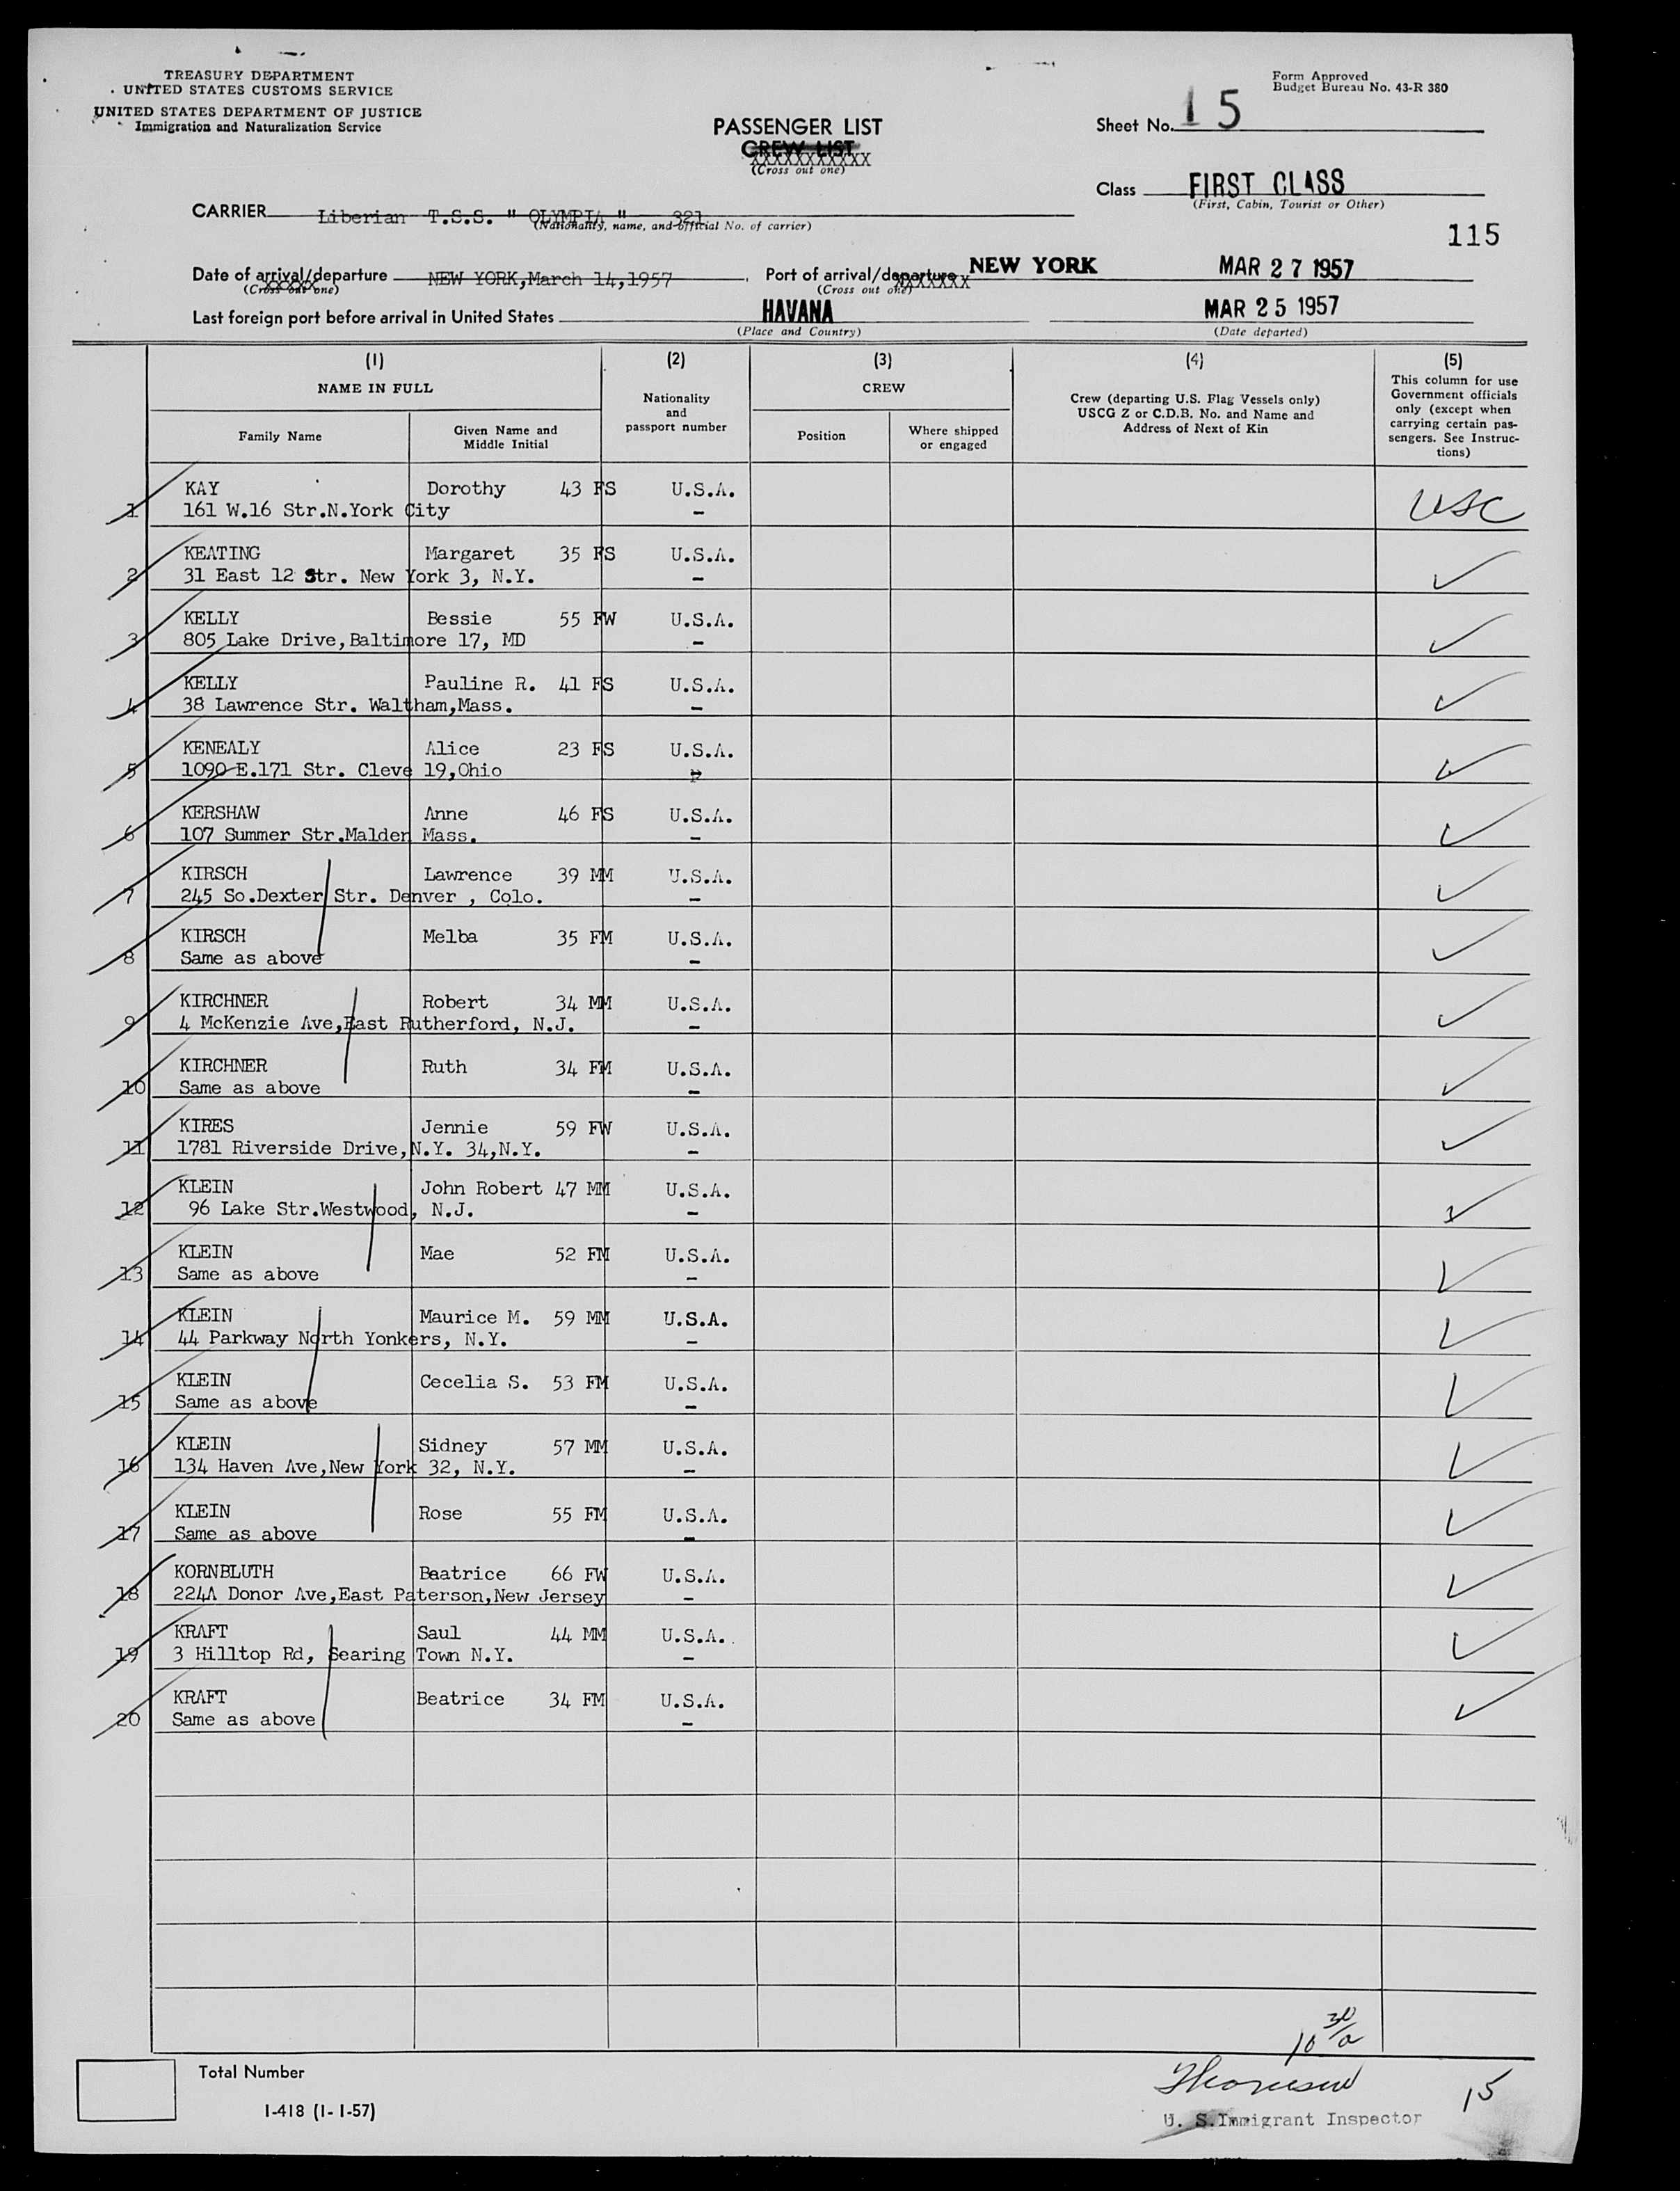 TREASURY DEPARTMENT
UNITED STATES CUSTOMS SERVICE
UNITED STATES DEPARTMENT OF JUSTICE
Immigration and Naturalization Service
Form Approved
Budget Bureau No. 43-R 380
PASSENGER LIST
CREW LIST
XXXXXXXXXXX
(Cross out one)
Sheet No. 15
Class FIRST CLASS
(First, Cabin, Tourist or Other)
CARRIER Liberian T.S.S. " OLYMPIA " 321
(Nationality, name, and official No. of carrier)
115
Date of arrival/departure NEW YORK,March 14,1957. Port of arrival/departure NEW YORK MAR 27 1957
(Cross out one) (Cross out one)
Last foreign port before arrival in United States HAVANA MAR 25 1957
(Place and Country) (Date departed)
(1) (2) (3) (4) (5)
NAME IN FULL
Family Name
Given Name and Middle Initial
Nationality and passport number
CREW
Position
Where shipped or engaged
Crew (departing U.S. Flag Vessels only)
USCG Z or C.D.B. No. and Name and
Address of Next of Kin
This column for use
Government officials
only (except when
carrying certain pas-
sengers. See Instruc-
tions)
KAY Dorothy 43 FS U.S.A. USC
1 161 W.16 Str.N.York City -
KEATING Margaret 35 FS U.S.A.
2 31 East 12 Str. New York 3, N.Y. -
KELLY Bessie 55 FW U.S.A.
3 805 Lake Drive,Baltimore 17, MD -
KELLY Pauline R. 41 FS U.S.A.
4 38 Lawrence Str. Waltham,Mass. -
KENEALY Alice 23 FS U.S.A.
5 1090 E.171 Str. Cleve 19,Ohio
KERSHAW Anne 46 FS U.S.A.
6 107 Summer Str.Malden Mass. -
KIRSCH Lawrence 39 MM U.S.A.
7 245 So.Dexter Str. Denver , Colo. -
KIRSCH Melba 35 FM U.S.A.
8 Same as above -
KIRCHNER Robert 34 MM U.S.A.
9 4 McKenzie Ave,East Rutherford, N.J. -
KIRCHNER Ruth 34 FM U.S.A.
10 Same as above -
KIRES Jennie 59 FW U.S.A.
11 1781 Riverside Drive,N.Y. 34,N.Y. -
KLEIN John Robert 47 MM U.S.A.
12 96 Lake Str.Westwood, N.J. -
KLEIN Mae 52 FM U.S.A.
13 Same as above -
KLEIN Maurice M. 59 MM U.S.A.
14 44 Parkway North Yonkers, N.Y. -
KLEIN Cecelia S. 53 FM U.S.A.
15 Same as above -
KLEIN Sidney 57 MM U.S.A.
16 134 Haven Ave,New York 32, N.Y. -
KLEIN Rose 55 FM U.S.A.
17 Same as above -
KORNBLUTH Beatrice 66 FW U.S.A.
18 224A Donor Ave,East Paterson,New Jersey -
KRAFT Saul 44 MM U.S.A.
19 3 Hilltop Rd, Searing Town N.Y. -
KRAFT Beatrice 34 FM U.S.A.
20 Same as above -
Total Number
I-418 (1-1-57)
U. S. Immigrant Inspector
15